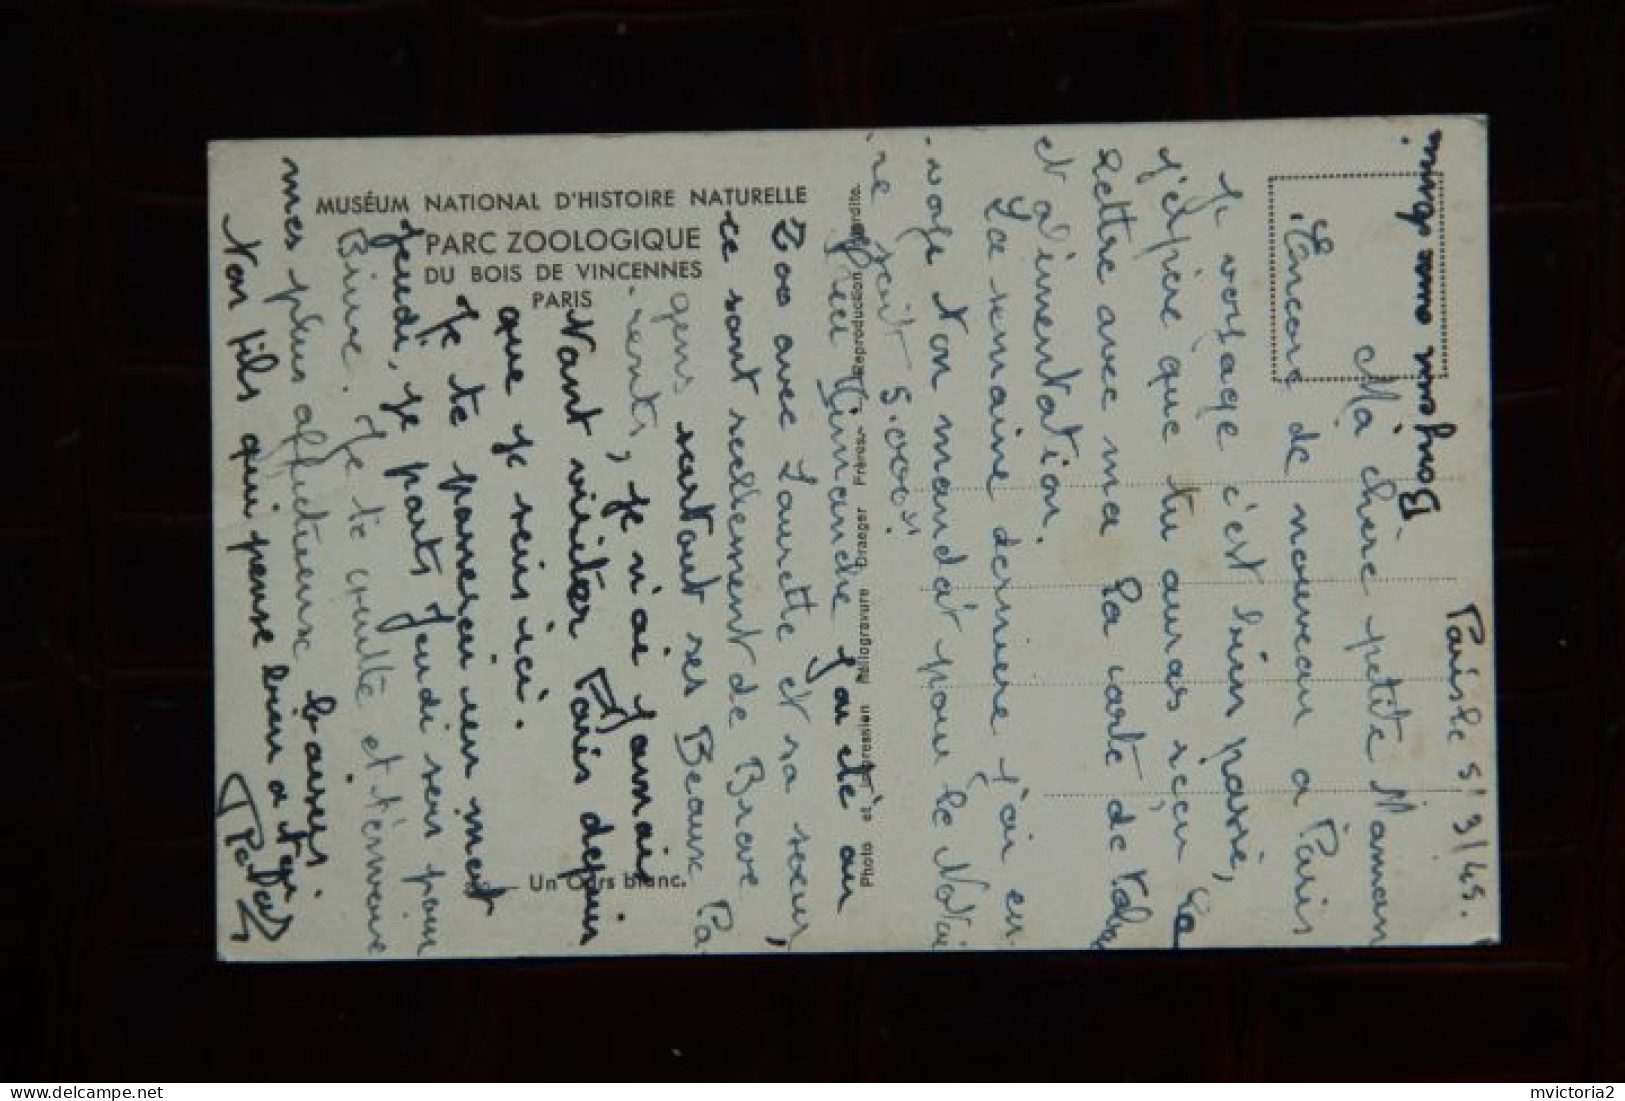 MUSÉUM NATIONAL D'HISTOIRE NATURELLE
PARC ZOOLOGIQUE
DU BOIS DE VINCENNES
PARIS
Un Ours blanc.
Photo et Impression Héliogravure Draeger Frères. - Reproduction interdite.
Paris le 5/3/45.
Ma chère petite Maman
Encore de nouveau a Paris
Le voyage c'est bien passé,
J'espère que tu auras reçu la
lettre avec ma la carte de
et d'alimentation.
La semaine dernière j'ai en
voyé ton mandat pour le Notai
re soit 5.000 frs.
j'ai été au
Zoo avec Laurette et sa soeur,
ce sont réellement de Brave
gens surtout ses Beaux Pa
rents, je n'ai jamais
tant visiter Paris depuis
que je suis ici.
Je te passerai rien
jeudi, je parts jeudi soir pour
Brive. Je te quitte et t'envoie
mes plus affectueux baisers
Ton fils qui pense bien a toi